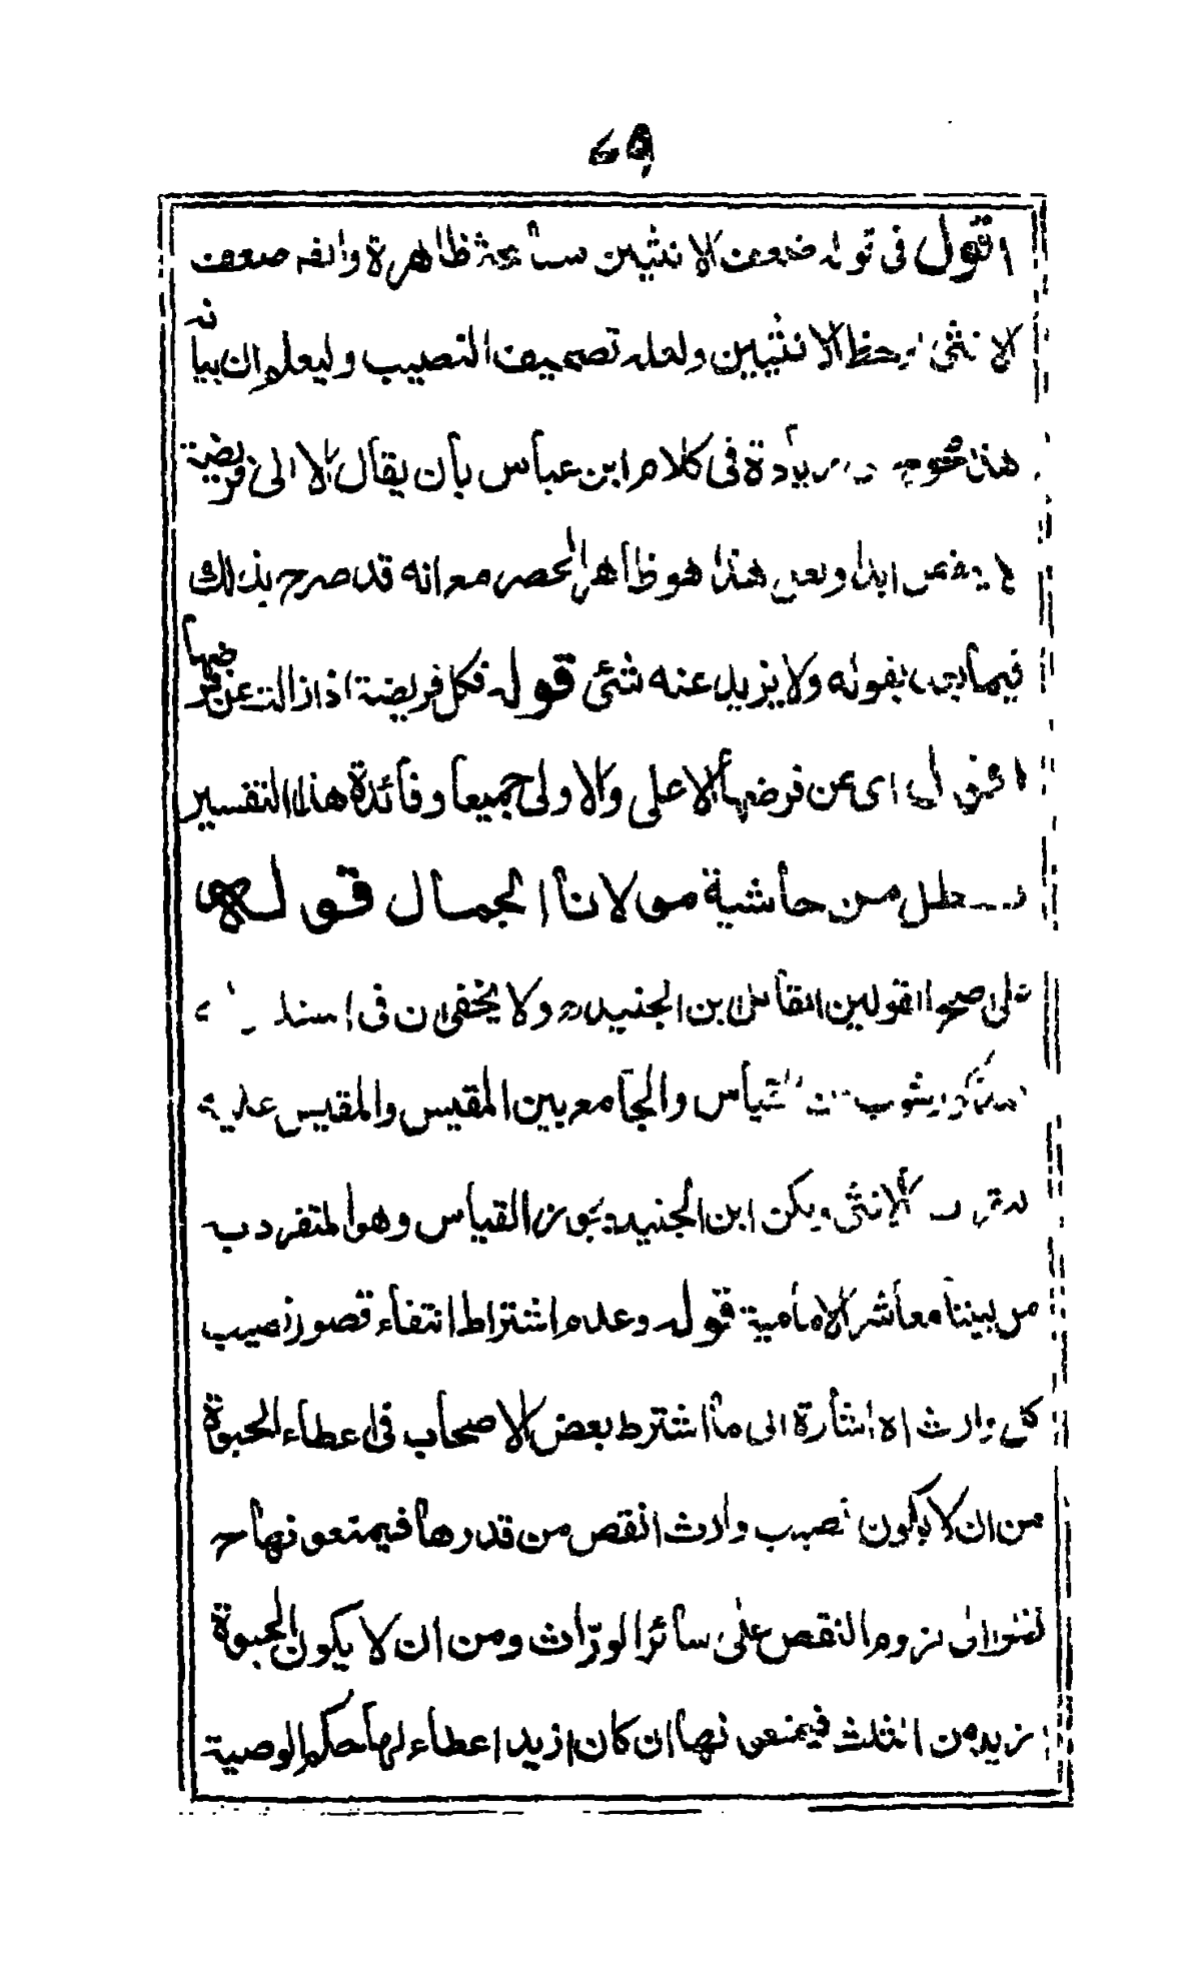 اقول في قوله ضعف الانثيين مسامحة ظاهرة وانه ضعف
الانثى حظ الانثيين ولعله تصحيف النصيب وليعلم ان بيانه
هذا في كلام ابن عباس بان يقال الا الى فريضة
ابدا هذا هو ظاهر الحصر مع انه قد صرح بذلك
فيما بعد بقوله ولا يزيد عنه شئ قوله فكل فريضة اذا زالت عن فرضها
اى عن فرضها الاعلى والاولى جميعا وفائدة هذا التفسير
من حاشية مولانا الجمال قوله
القولين القائل ابن الجنيد ولا يخفى ان فى
القياس والجامع بين المقيس والمقيس عليه
الانثى ويكن ابن الجنيد يجوز القياس وهو المتفرد به
من بيننا معاشر الامامية قوله وعدم اشتراط انتفاء قصور نصيب
كل وارث اه اشارة الى ما اشترط بعض الاصحاب فى اعطاء الحبوة
من ان لا يكون نصيب وارث انقص من قدرها فيمتنعونها ح
لزوم النقص على سائر الورّاث ومن ان لا يكون الحبوة
ازيد من الثلث فيمنعونها ان كان ازيد اعطاء لها حكم الوصية